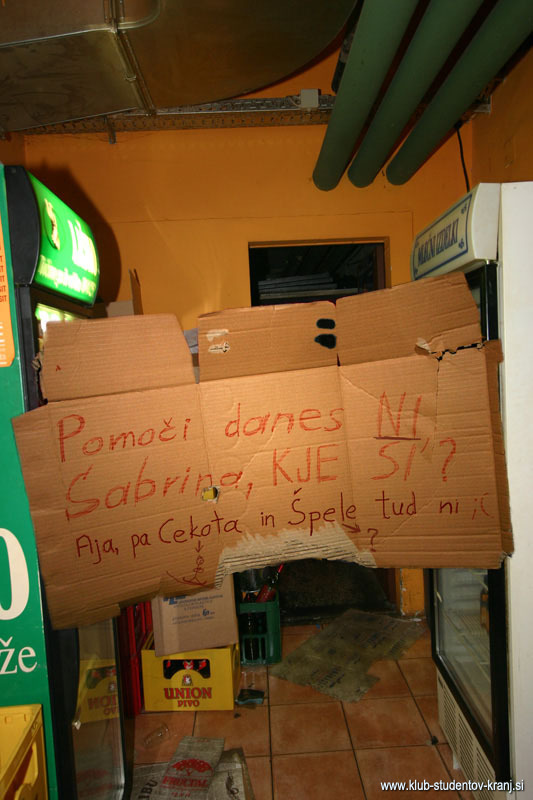 MLAČNI IZDELKI
Pomoči danes NI
Sabrina, KJE SI?
Aja, pa Cekota in Špele tud ni ;(
?
0
že
UNION
PIVO
FRUCTAL
www.klub-studentov-kranj.si